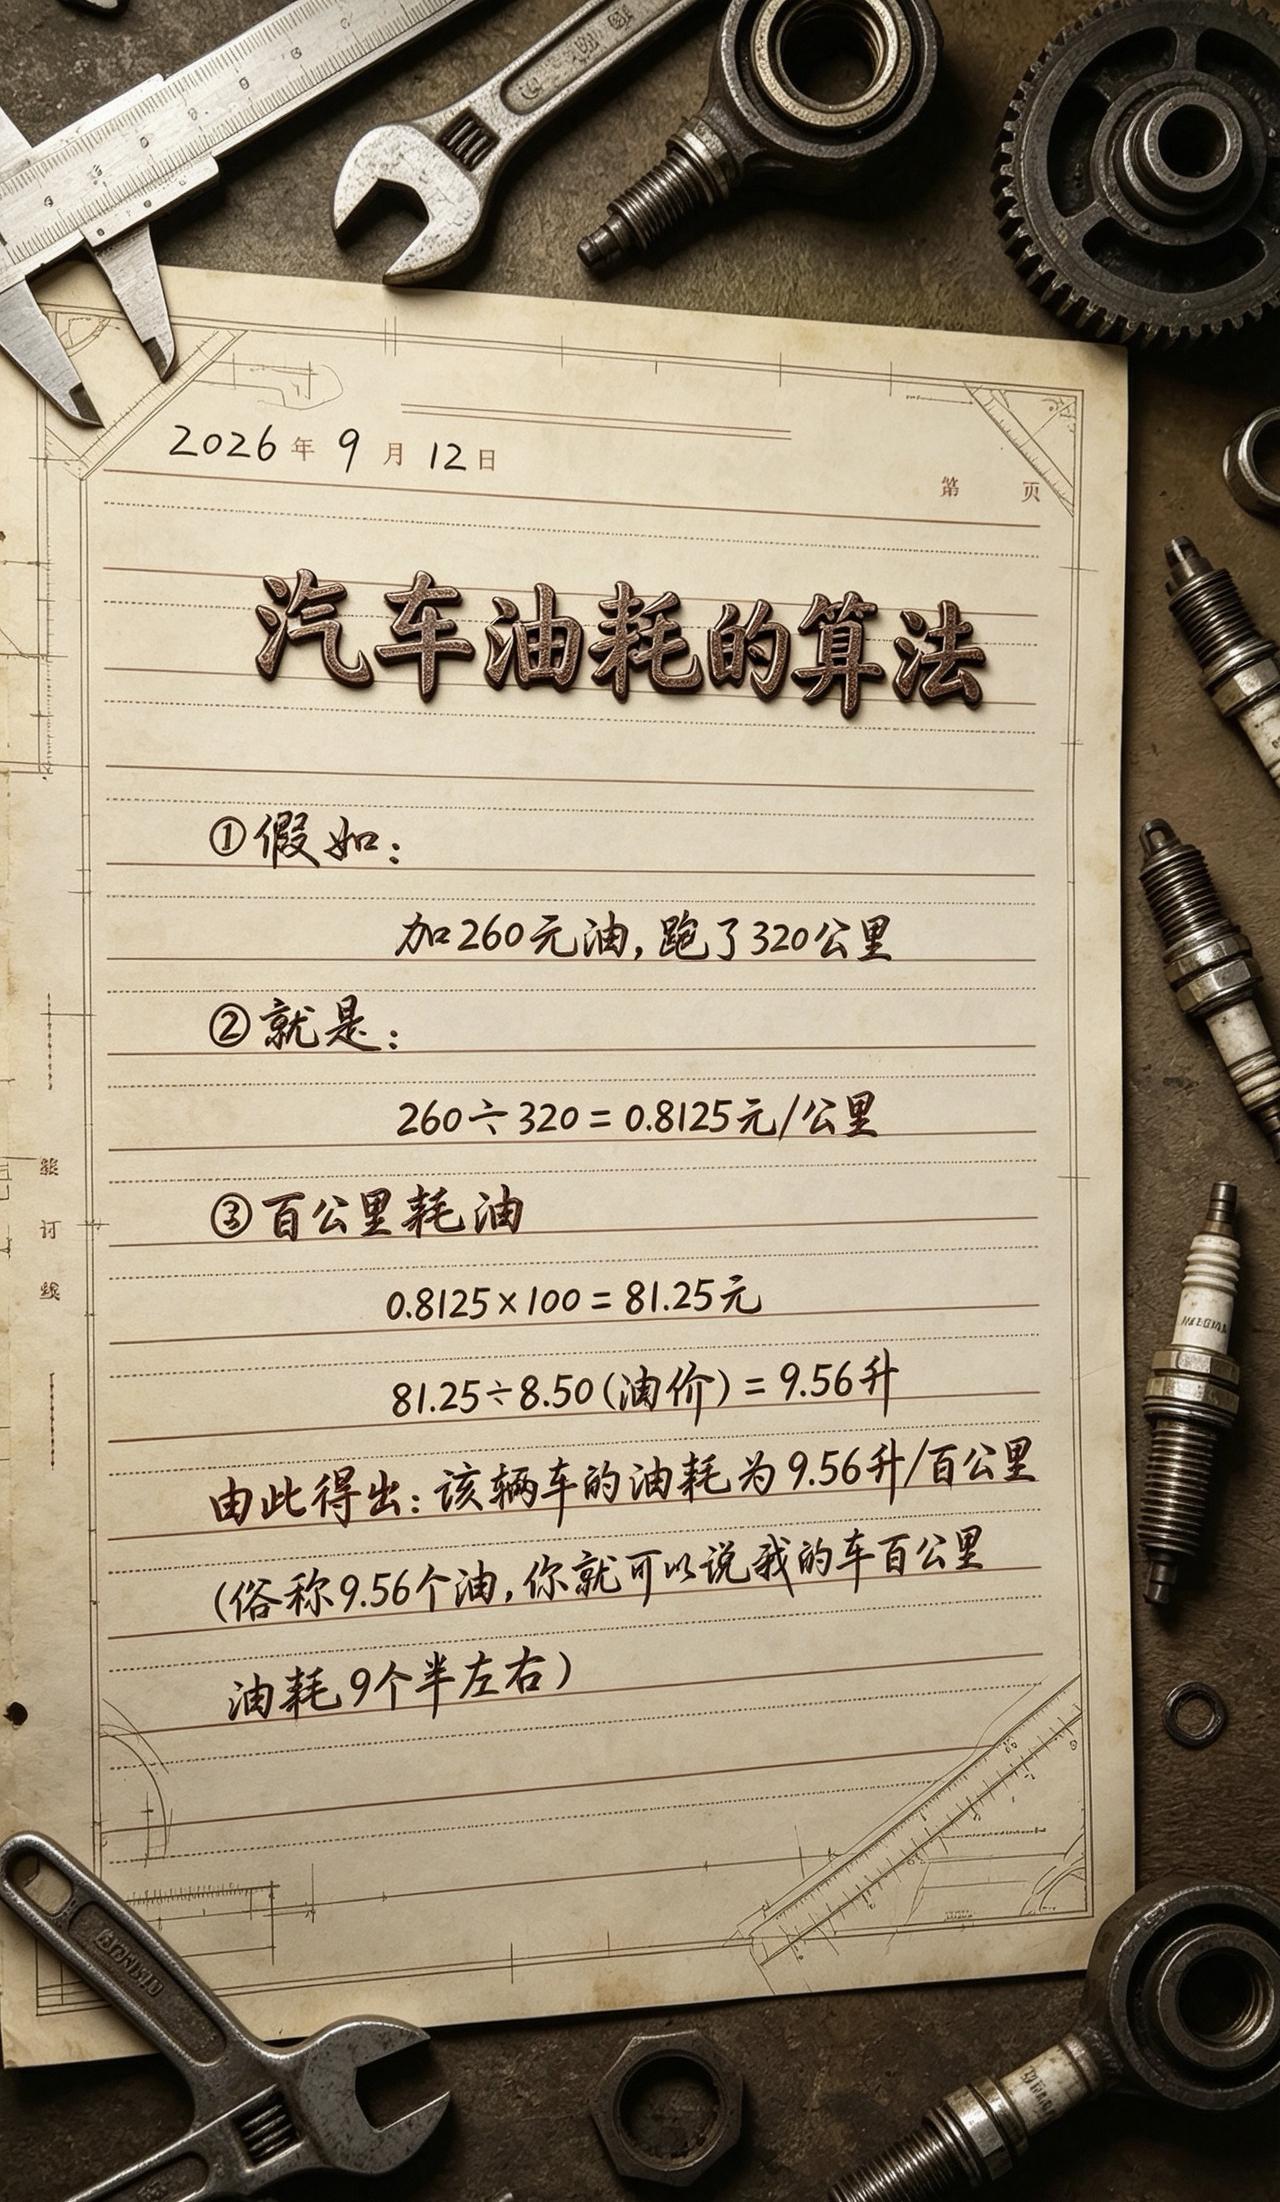 2026年9月12日
第 页
汽车油耗的算法
①假如：
加260元油，跑了320公里
②就是：
260÷320=0.8125元/公里
③百公里耗油
0.8125×100=81.25元
81.25÷8.50(油价)=9.56升
由此得出：该辆车的油耗为9.56升/百公里
(俗称9.56个油，你就可以说我的车百公里
油耗9个半左右)
装
订
线